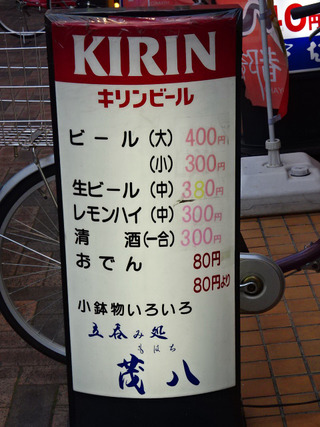 KIRIN
キリンビール
ビール (大) 400円
(小) 300円
生ビール (中) 380円
レモンハイ (中) 300円
清酒 (一合) 300円
おでん 80円
80円より
小鉢物いろいろ
立呑み処
もはち
茂八